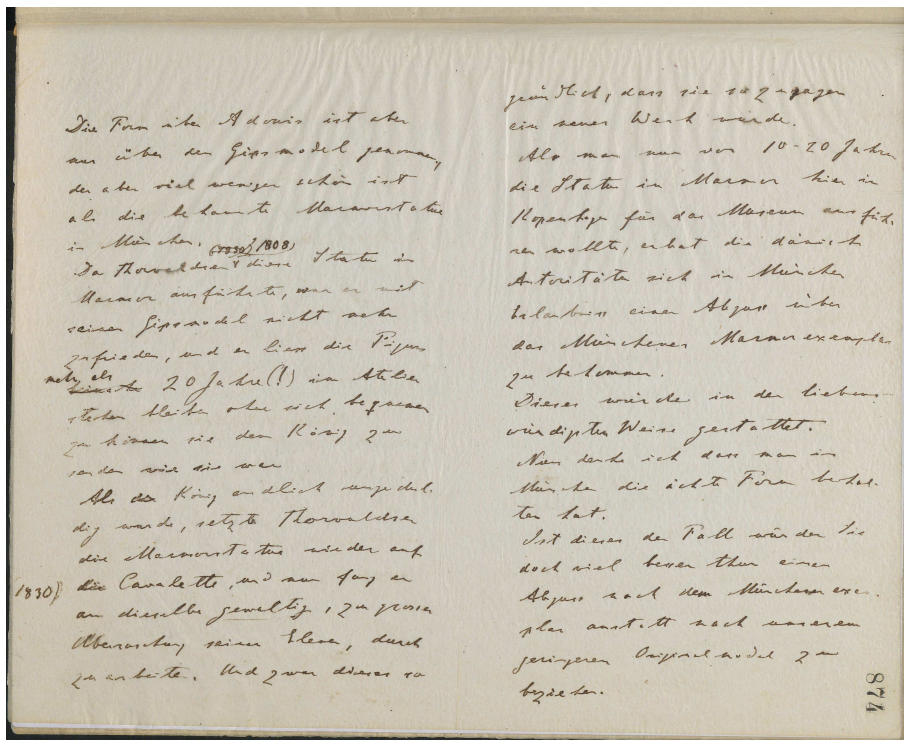 Die Form über Adonis ist aber
nur über den Gipsmodel genommen,
der aber viel weniger schön ist
als die bekannte Marmorstatue
in München.
(1830) (1808)
Da Thorvaldsen diese Statue in
Marmor ausführte, war er mit
seinen Gipsmodel nicht mehr
zufrieden, und er liess die Figur
mehr als
20 Jahre(!) im Atelier
stehen bleiben ohne sich bequemen
zu können sie dem König zu
senden wie sie war
Als der König endlich ungedul-
dig wurde, setzte Thorvaldsen
die Marmorstatue wieder auf
1830) die Cavalette, und nun fing er
an dieselbe gewaltig, zu grosser
Überraschung seiner Eleven, durch
zu arbeiten. Und zwar dieses so
gründlich, dass sie sozusagen
ein neues Werk wurde.
Als man nun vor 10-20 Jahren
die Statue in Marmor hier in
Kopenhagen für das Museum ausfüh-
ren wollte, erbat die dänisch
Autoritäten sich in München
Erlaubniss einen Abguss über
das Münchener Marmorexemplar
zu bekommen.
Dieses wurde in der liebens-
würdigsten Weise gestattet.
Nun denke ich dass man in
München die ächte Form behal-
ten hat.
Ist dieses der Fall würden Sie
doch viel besser thun einen
Abguss nach dem Münchener exem-
plar anstatt nach unserem
geringeren Originalmodel zu
beziehen.
874